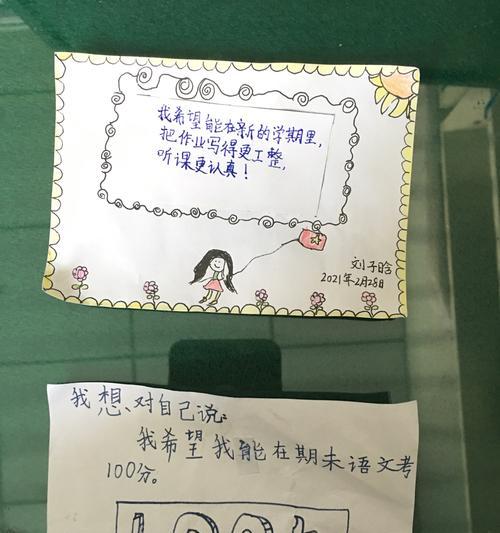 我希望能在新的学期里，
把作业写得更工整，
听课更认真！
刘子晗
2021年2月28日
我想对自己说：
我希望我能在期末语文考
100分。